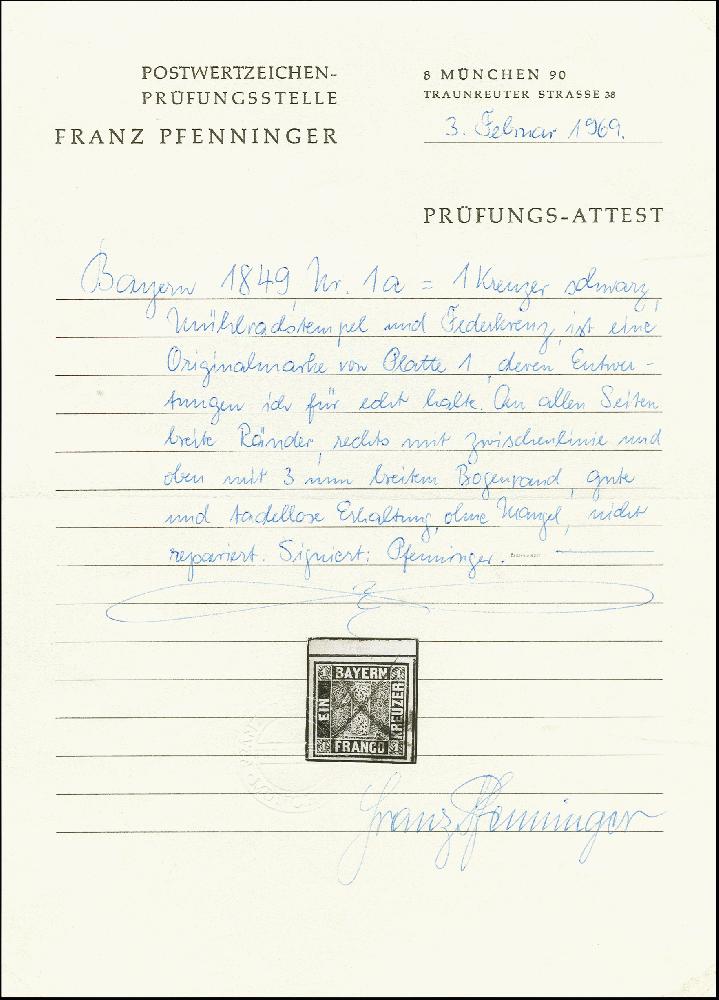 POSTWERTZEICHEN-
PRÜFUNGSSTELLE
FRANZ PFENNINGER
8 MÜNCHEN 90
TRAUNREUTER STRASSE 38
3. Februar 1969.
PRÜFUNGS-ATTEST
Bayern 1849 Nr. 1a = 1 Kreuzer schwarz,
Mühlradstempel und Federkreuz, ist eine
Originalmarke von Platte 1, deren Entwer-
tungen ich für echt halte. An allen Seiten
breite Ränder, rechts mit Zwischenlinie und
oben mit 3 mm breitem Bogenrand, gute
und tadellose Erhaltung, ohne Mängel, nicht
repariert. Signiert: Pfenninger.
BAYERN
EIN
KREUZER
FRANCO
Franz Pfenninger